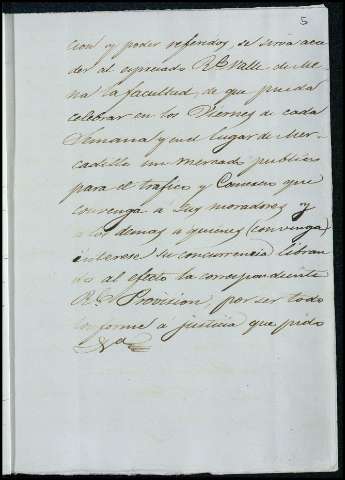 5
cion y poder referidos, se sirva acce
der al espresado Rl Valle de Me
na la facultad de que pueda
celebrar en los Viernes de cada
Semana y en el lugar de Mer
cadillo un mercado publico
para el trafico y Comercio que
convenga á sus moradores y
a los demas a quienes (convenga)
interese su concurrencia libran
do al efecto la correspondiente
Rl Provision, por ser todo
conforme á justicia que pido